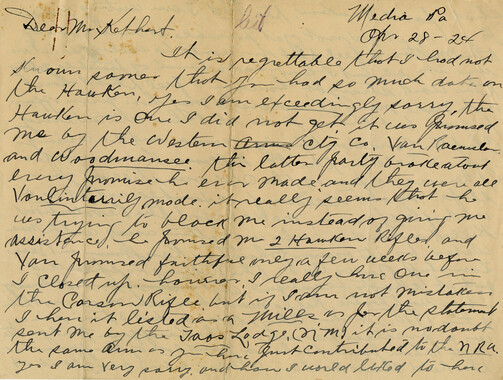 Media Pa
Dear Mr Kephart. Apr 28-24
It is regrettable that I had not
known sooner that you had so much data on
the Hawken, yes I am exceedingly sorry, the
Hawken is one I did not get, it was promised
me by the Western Arms Cty Co. Van
and Woodmansee. this latter party broke about
every promise he ever made, and they were all
made. it really seems that he
was trying to block me instead of giving me
assistance. he promised me 2 Hawken Rifles, and
Van promised faithful only a few weeks before
I closed up. however, I really have one in
the Carson Rifle but if I am not mistaken
I have it listed as a Mills as for the statement
sent me by the Taos Lodge, (N M) it is no doubt
the same arm as you have just contributed to the N.R.A.
yes I am very sorry, and how I would liked to have